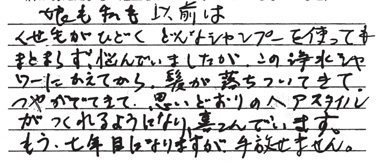 娘も私も以前は
くせ毛がひどく どんなシャンプーを使っても
まとまらず、悩んでいましたが、この浄水シャ
ワーにかえてから、髪が落ちついてきて、
つやがでてきて、思いどおりのヘアスタイル
がつくれるようになり、喜こんでいます。
もう、七年目になりますが、手放せません。